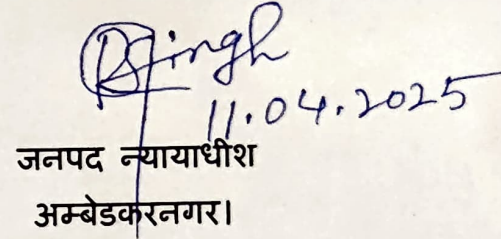 Singh
11.04.2025
जनपद न्यायाधीश
अम्बेडकरनगर।